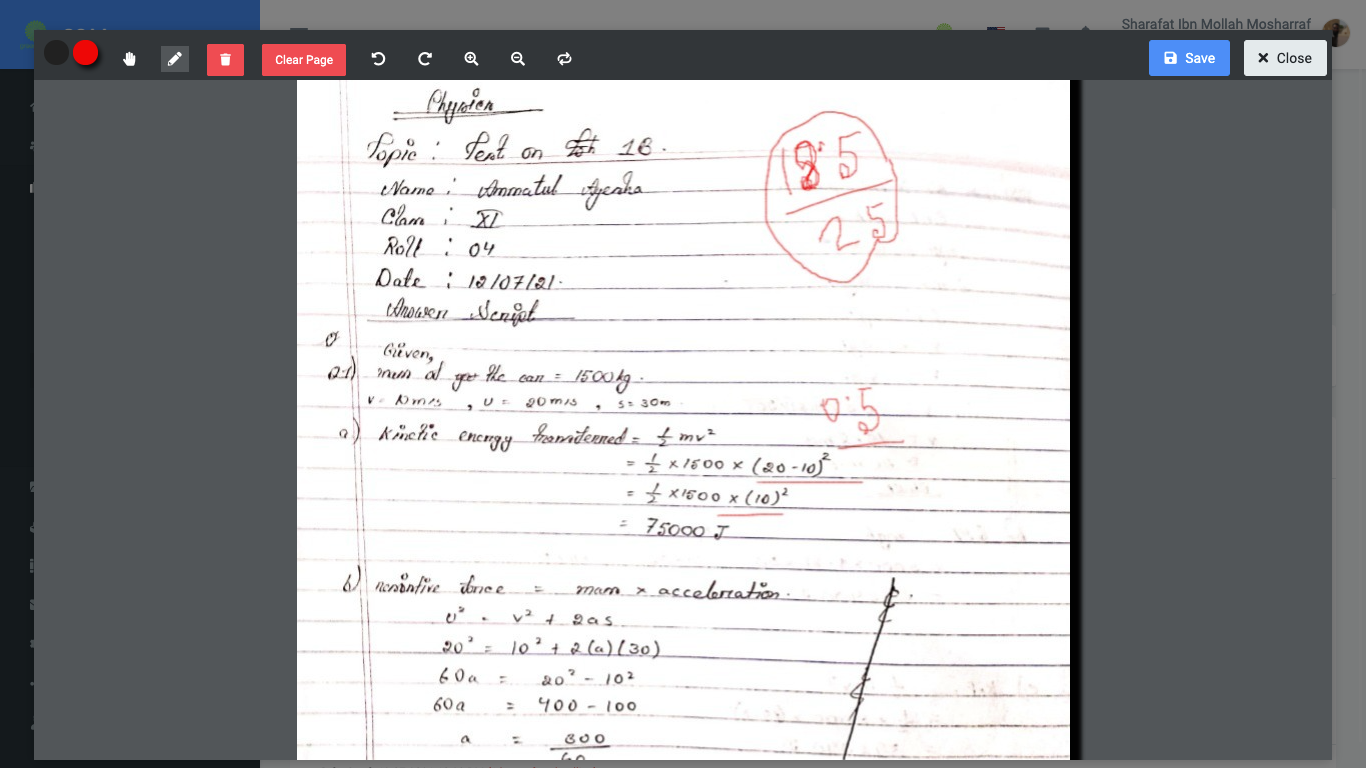 Sharafat Ibn Mollah Mosharraf
Clear Page
Save
Close
Physics
Topic : Test on 1B.
Name : Ammatul Ayesha
Class : XI
Roll : 04
Date : 12/07/21.
Answer Script
18.5
25
Given,
Q.1) mass of the car = 1500 kg.
v = 10 m/s , u = 20 m/s , s = 30 m
0.5
a) Kinetic energy transferred = 1/2 mv²
= 1/2 × 1500 × (20 - 10)²
= 1/2 × 1500 × (10)²
= 75000 J
b) resistive force = mass × acceleration.
v² + 2as
20² = 10² + 2(a)(30)
60a = 20² - 10²
60a = 400 - 100
a = 300